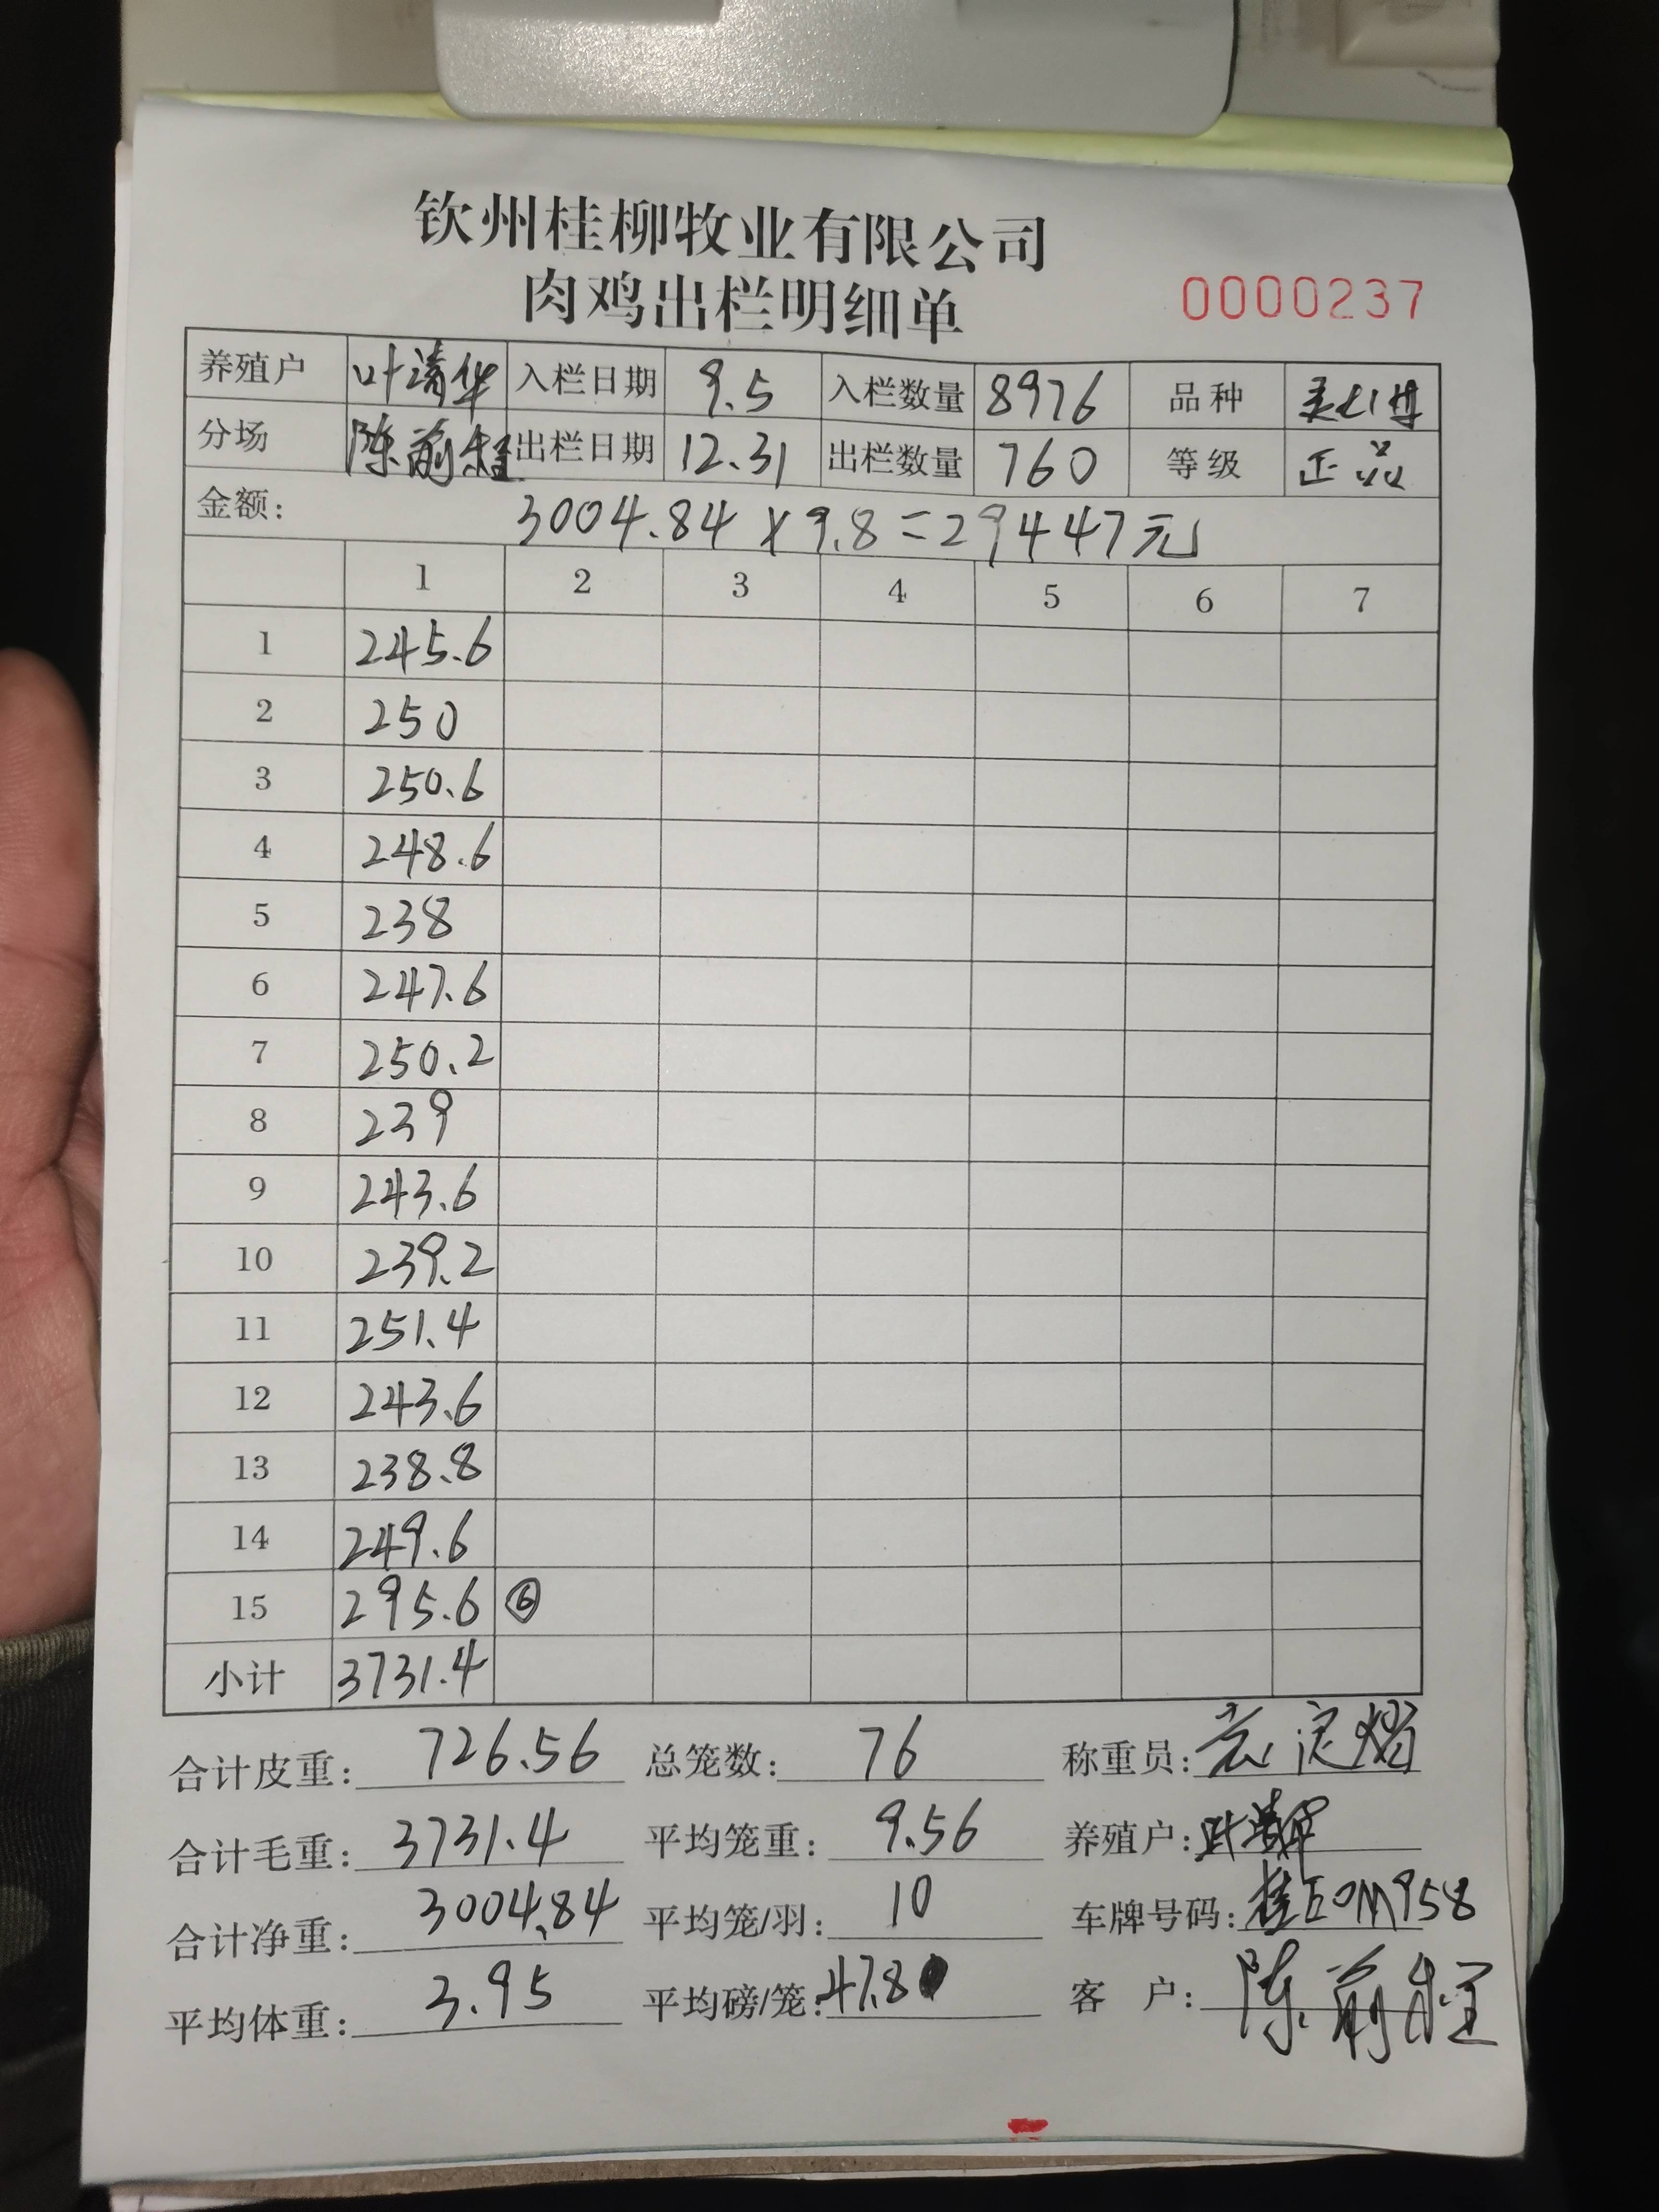 钦州桂柳牧业有限公司
肉鸡出栏明细单 0000237
养殖户 叶清华 入栏日期 9.5 入栏数量 8976 品种
分场 陈前程 出栏日期 12.31 出栏数量 760 等级 正品
金额: 3004.84 x 9.8=29447元
1 2 3 4 5 6 7
1 245.6
2 250
3 250.6
4 248.6
5 238
6 247.6
7 250.2
8 239
9 243.6
10 239.2
11 251.4
12 243.6
13 238.8
14 249.6
15 295.6 ⑥
小计 3731.4
合计皮重: 726.56 总笼数: 76 称重员:
合计毛重: 3731.4 平均笼重: 9.56 养殖户: 叶清华
合计净重: 3004.84 平均笼/羽: 10 车牌号码: 桂E0M958
平均体重: 3.95 平均磅/笼: 47.8 客 户: 陈前程